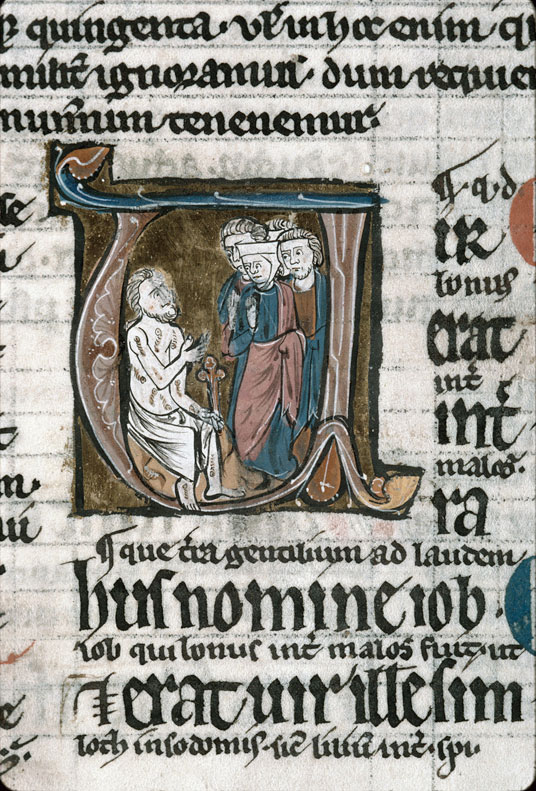 quingenta. Ul' in hoc enim qu
ignoramur. dum requiem
tenenemur.
¶ .q.d
IR
bonus
erat
int̄
int̄
malos.
ra
¶ que t̄ra gentilium ad laudem
hus nomine iob.
iob qui bonus int̄ malos fuit. ut
⁊ erat uir ille sim
loth in sodomis. sic lilium int̄. spi.